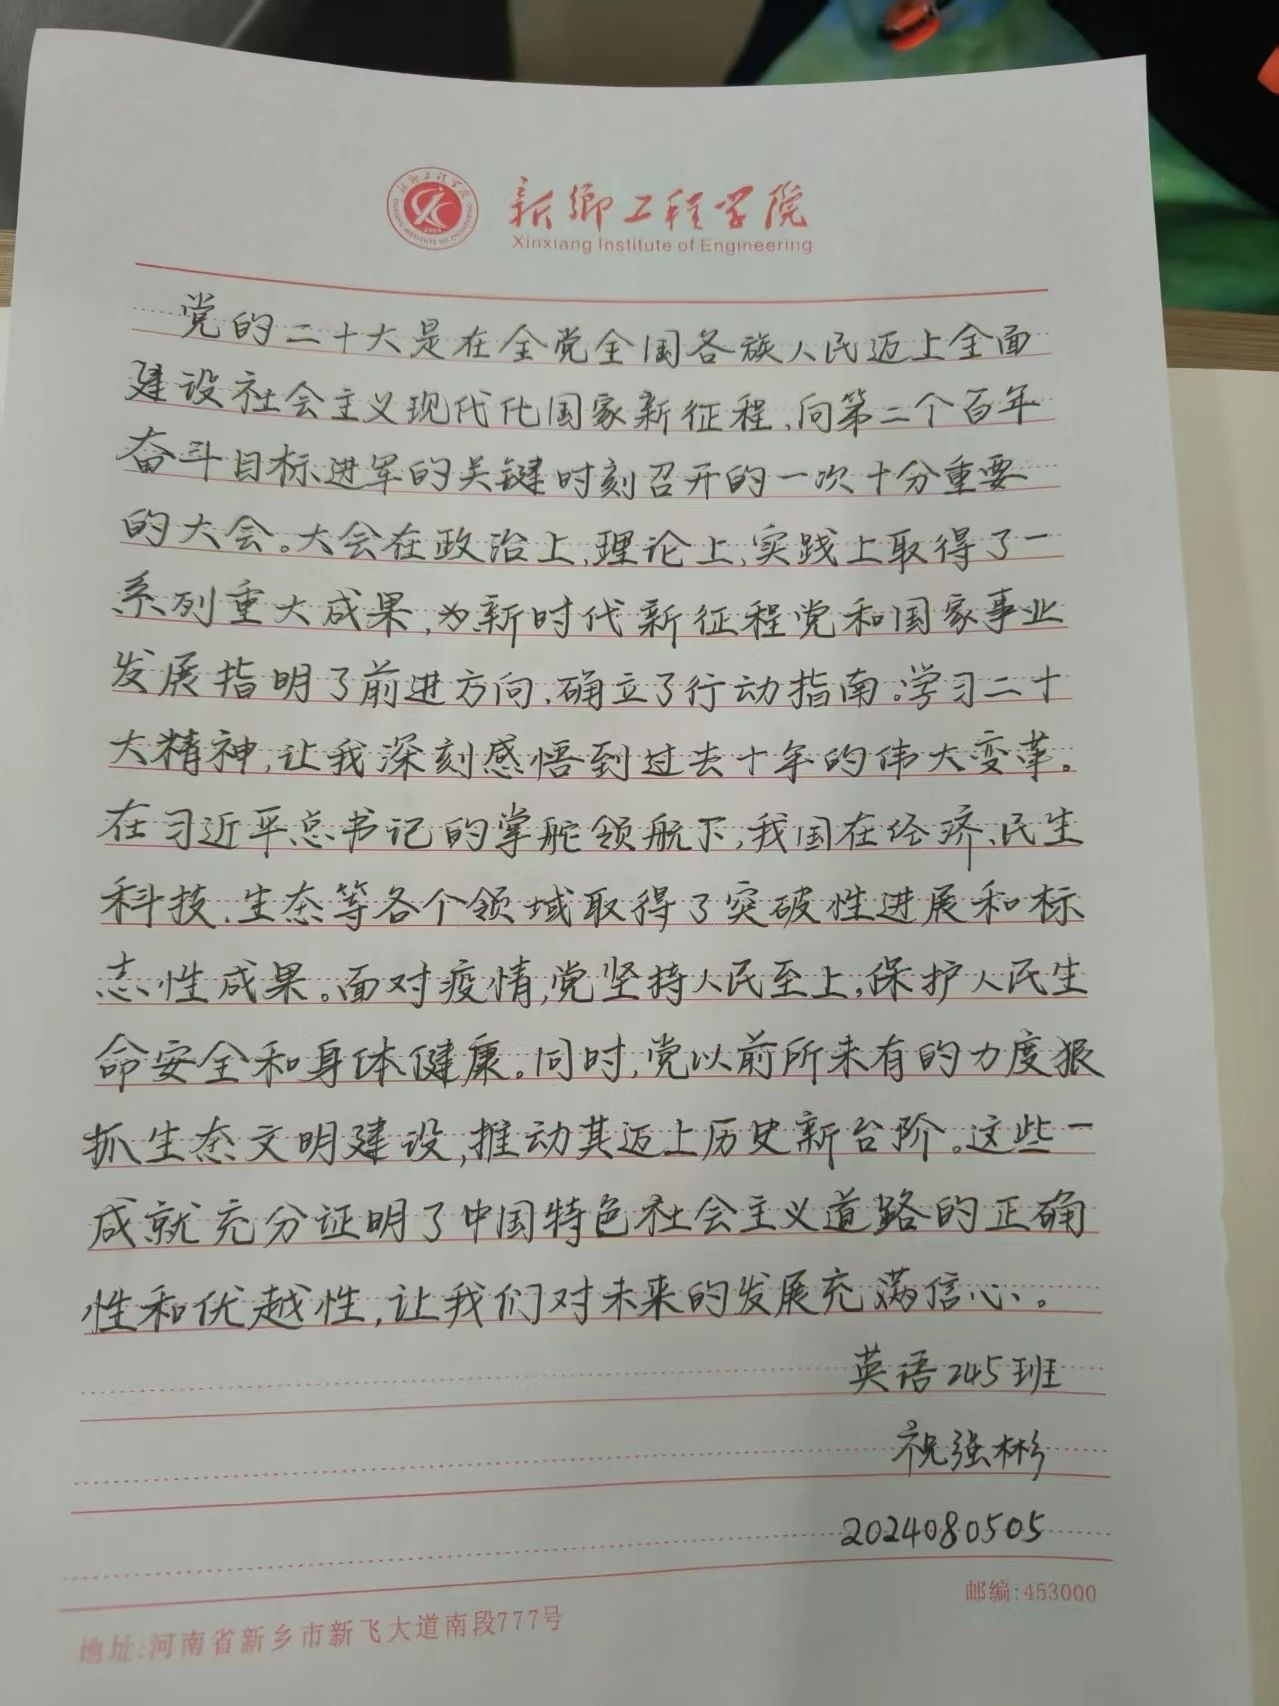 新鄉工程学院
Xinxiang Institute of Engineering
党的二十大是在全党全国各族人民迈上全面
建设社会主义现代化国家新征程、向第二个百年
奋斗目标进军的关键时刻召开的一次十分重要
的大会。大会在政治上,理论上,实践上取得了一
系列重大成果,为新时代新征程党和国家事业
发展指明了前进方向、确立了行动指南。学习二十
大精神,让我深刻感悟到过去十年的伟大变革。
在习近平总书记的掌舵领航下,我国在经济、民生
科技、生态等各个领域取得了突破性进展和标
志性成果。面对疫情,党坚持人民至上,保护人民生
命安全和身体健康。同时,党以前所未有的力度狠
抓生态文明建设,推动其迈上历史新台阶。这些一
成就充分证明了中国特色社会主义道路的正确
性和优越性,让我们对未来的发展充满信心。
英语245班
祝强彬
2024080505
邮编:453000
地址:河南省新乡市新飞大道南段777号